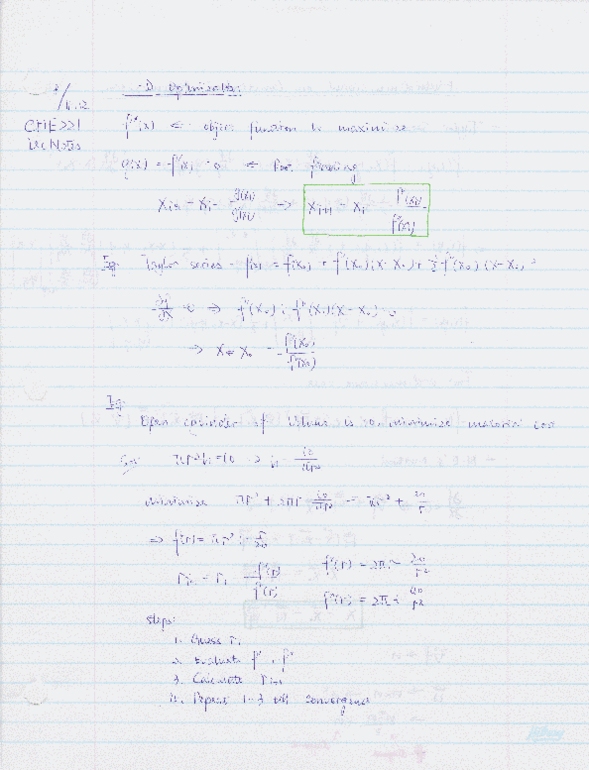 1-D optimization
f(x) ← object function to maximize
g(x) = f'(x) = 0 ← Root finding
Xi+1 = Xi - g(xi)/g'(xi) → Xi+1 = Xi - f'(xi)/f"(xi)
Eg. Taylor series f(x) = f(x₀) + f'(x₀)(x-x₀) + ½ f"(x₀)(x-x₀)²
= 0 ⇒ f'(x₀) + f"(x₀)(x-x₀) = 0
→ x = x₀ - f'(x₀)/f"(x₀)
Eg.
Open cylinder of volume is 10, minimize material
πr²h = 10 → h = 10/πr²
minimize πr² + 2πr 10/πr² = πr² + 20/r
⇒ f(r) = πr² + 20/r
ri+1 = ri - f'(r)/f"(r) f'(r) = 2πr - 20/r²
f"(r) = 2π +
Steps:
1. Guess ri
2. Evaluate f', f"
3. Calculate ri+1
4. Repeat 1-3 till convergence